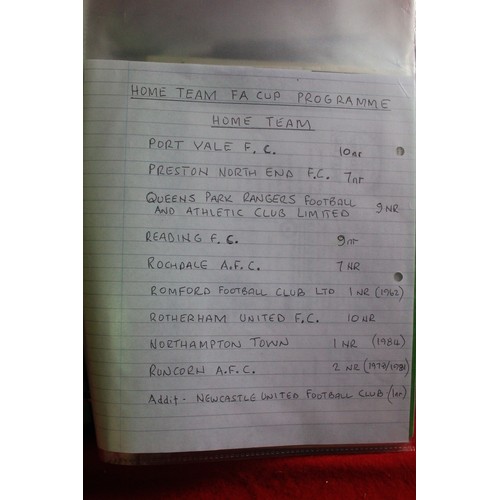 HOME TEAM FA CUP PROGRAMME
HOME TEAM
PORT VALE F.C. 10nr
PRESTON NORTH END F.C. 7nr
QUEENS PARK RANGERS FOOTBALL
AND ATHLETIC CLUB LIMITED 9 NR
READING F.C. 9nr
ROCHDALE A.F.C. 7 NR
ROMFORD FOOTBALL CLUB LTD 1 NR (1962)
ROTHERHAM UNITED F.C. 10 NR
NORTHAMPTON TOWN 1 NR (1984)
RUNCORN A.F.C. 2 NR
Addit - NEWCASTLE UNITED FOOTBALL CLUB (1nr)